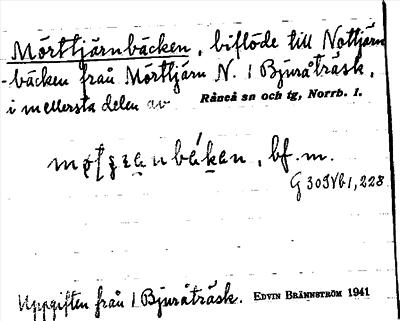 Mörttjärnbäcken, biflöde till Nottjärn
-bäcken från Mörttjärn N. 1 Bjuråträsk,
i mellersta delen av Råneå sn och tg, Norrb. l.
bf. m.
G 30 IVb1, 228
Uppgiften från 1 Bjuråträsk. EDVIN BRÄNNSTRÖM 1941